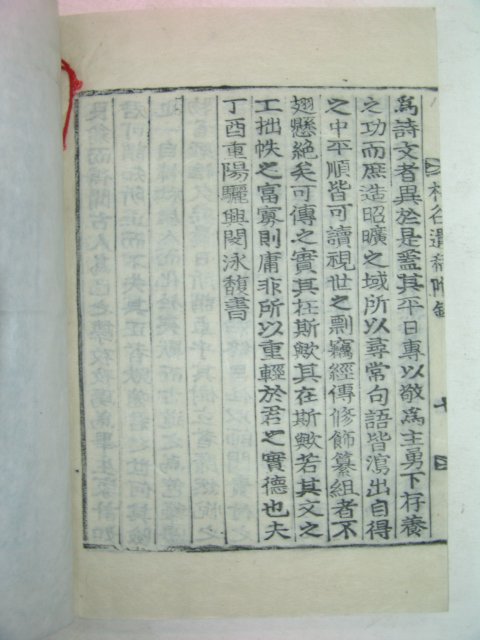 遺稿附錄
爲詩文者異於是盖其平日專以敬爲主勇下存養
之功而庶造昭曠之域所以尋常句語皆瀉出自得
之中平順皆可讀視世之剽竊經傳修飾纂組者不
翅懸絶矣可傳之實其在斯歟其在斯歟若其文之
工拙帙之富寡則庸非所以重輕於君之實德也夫
丁酉重陽驪興閔泳馥書